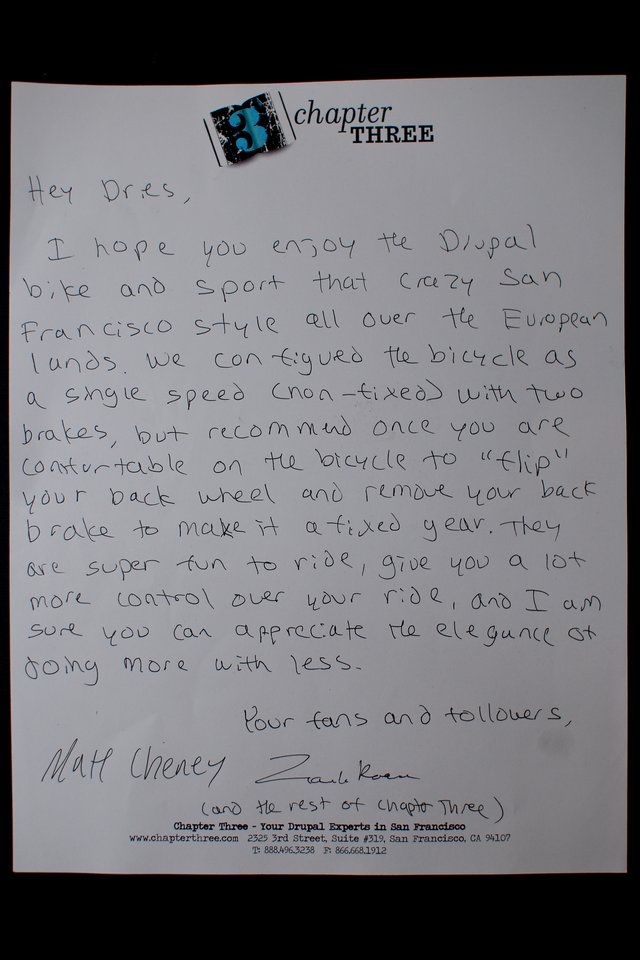 3 chapter
THREE
Hey Dries,
I hope you enjoy the Drupal
bike and sport that crazy San
Francisco style all over the European
lands. We configued the bicycle as
a single speed (non-fixed) with two
brakes, but recommend once you are
comfortable on the bicycle to "flip"
your back wheel and remove your back
brake to make it a fixed gear. They
are super fun to ride, give you a lot
more control over your ride, and I am
sure you can appreciate the elegance of
doing more with less.
Your fans and followers,
Matt Cheney
(and the rest of Chapter Three)
Chapter Three - Your Drupal Experts in San Francisco
www.chapterthree.com 2325 3rd Street, Suite #319, San Francisco, CA 94107
T: 888.496.3238 F: 866.668.1912